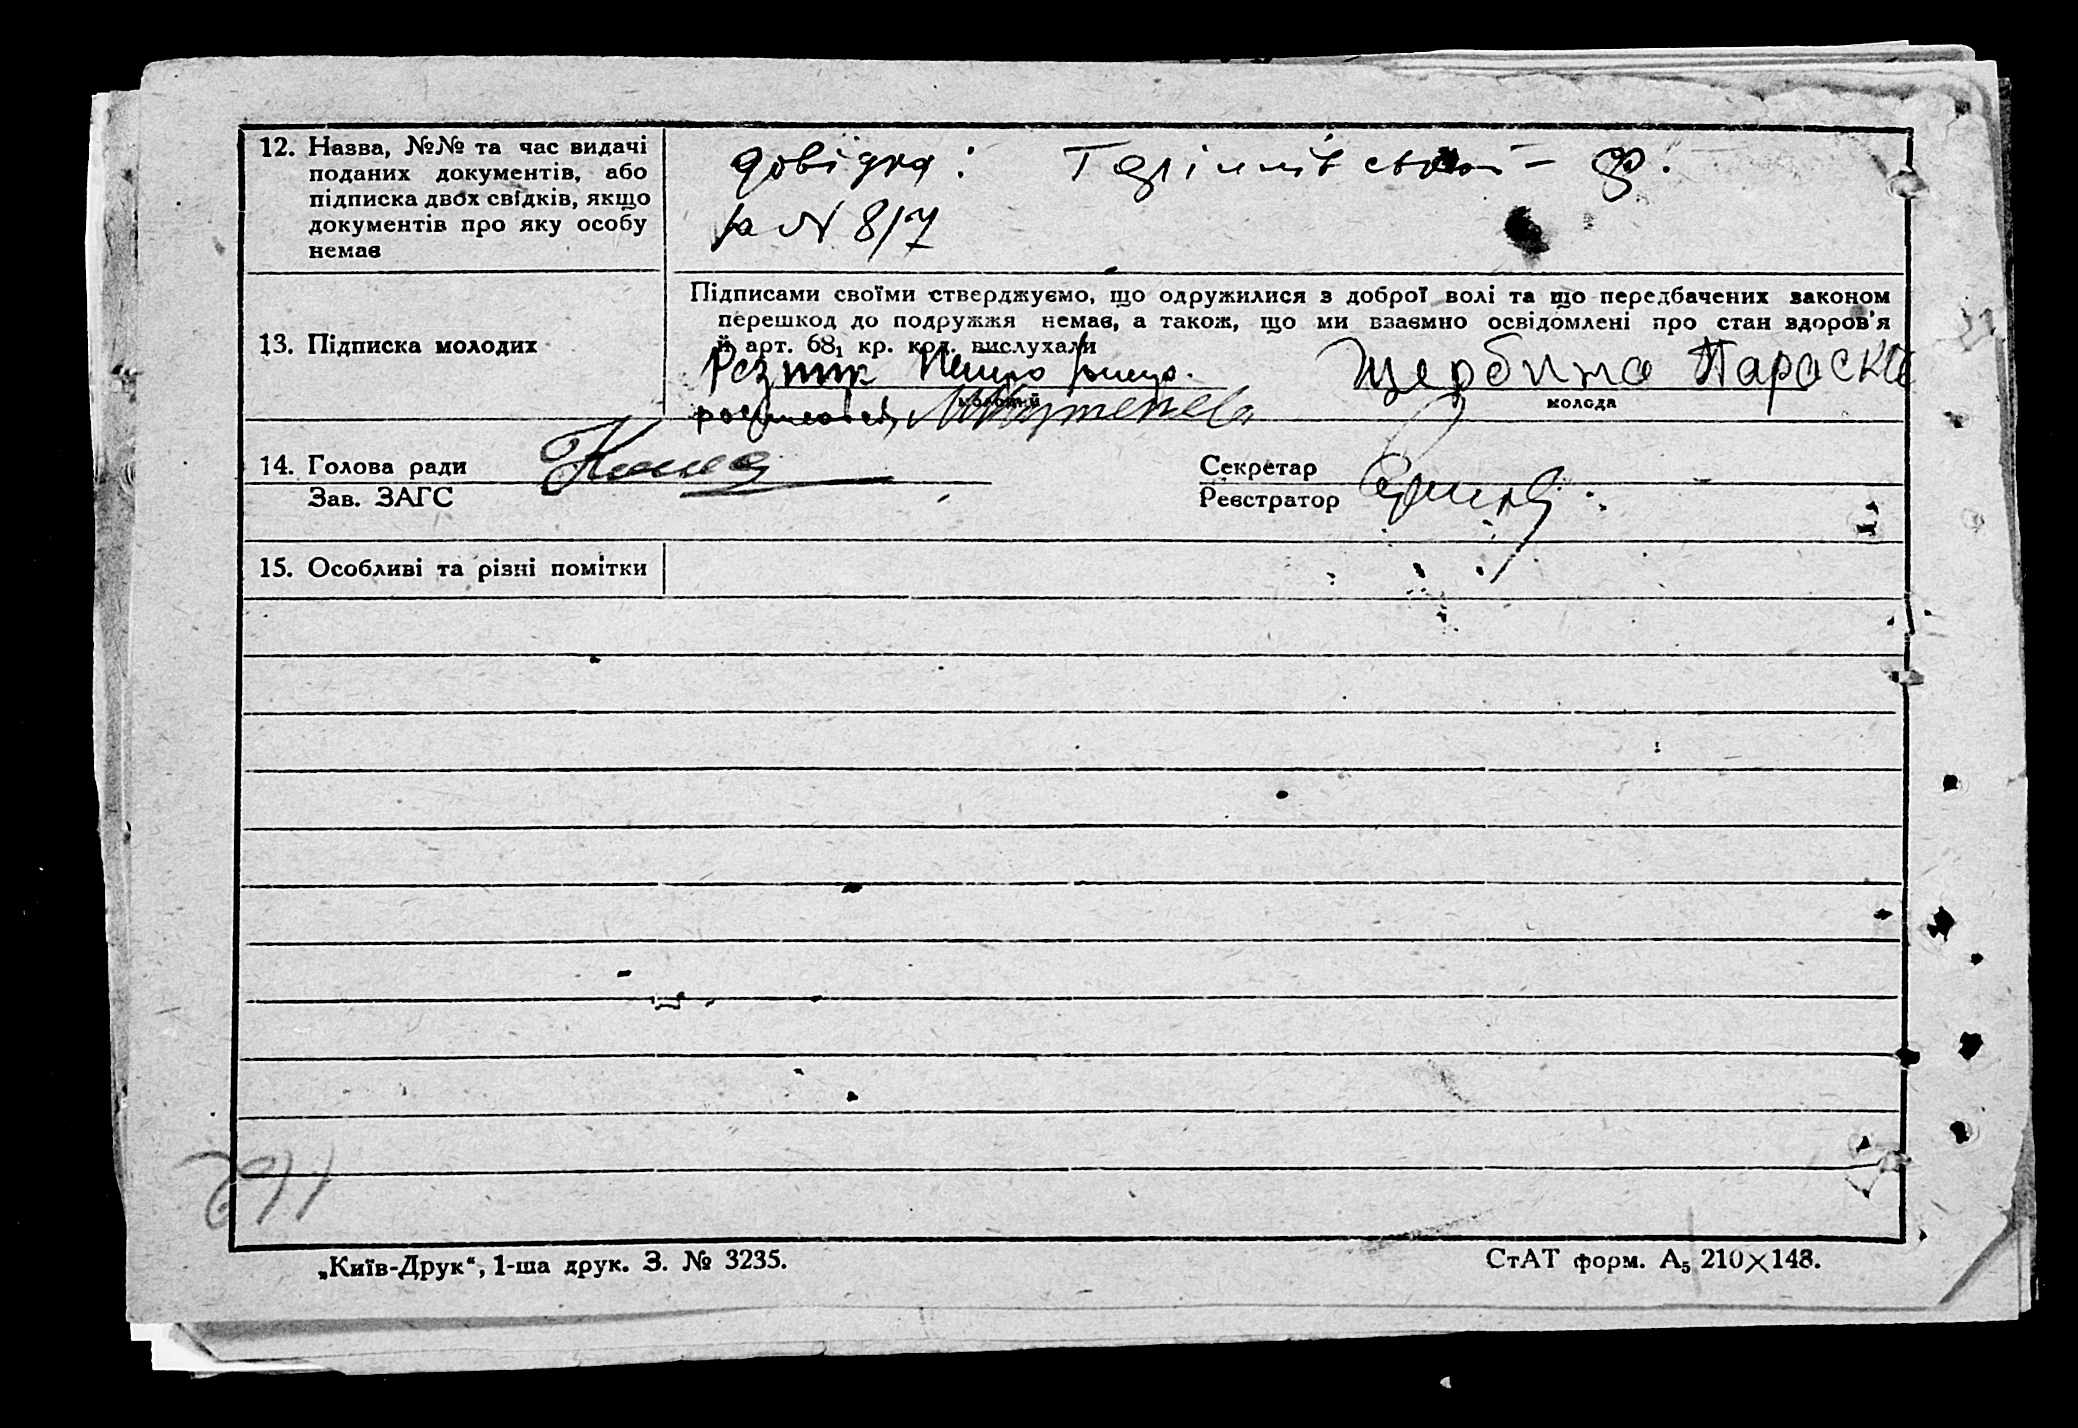 12. Назва, №№ та час видачі
поданих документів, або
підписка двох свідків, якщо
документів про яку особу
немає
довідка:
за N 8/7
13. Підписка молодих
Підписами своїми стверджуємо, що одружилися з доброї волі та що передбачених законом
перешкод до подружжя немає, а також, що ми взаємно освідомлені про стан здоров'я
й арт. 68₁ кр. код. вислухали
Резник Щербина Параска
молодий молода
14. Голова ради Секретар
Зав. ЗАГС Реєстратор
15. Особливі та різні помітки
„Київ-Друк“, 1-ша друк. З. № 3235. СтАТ форм. А₅ 210×148.